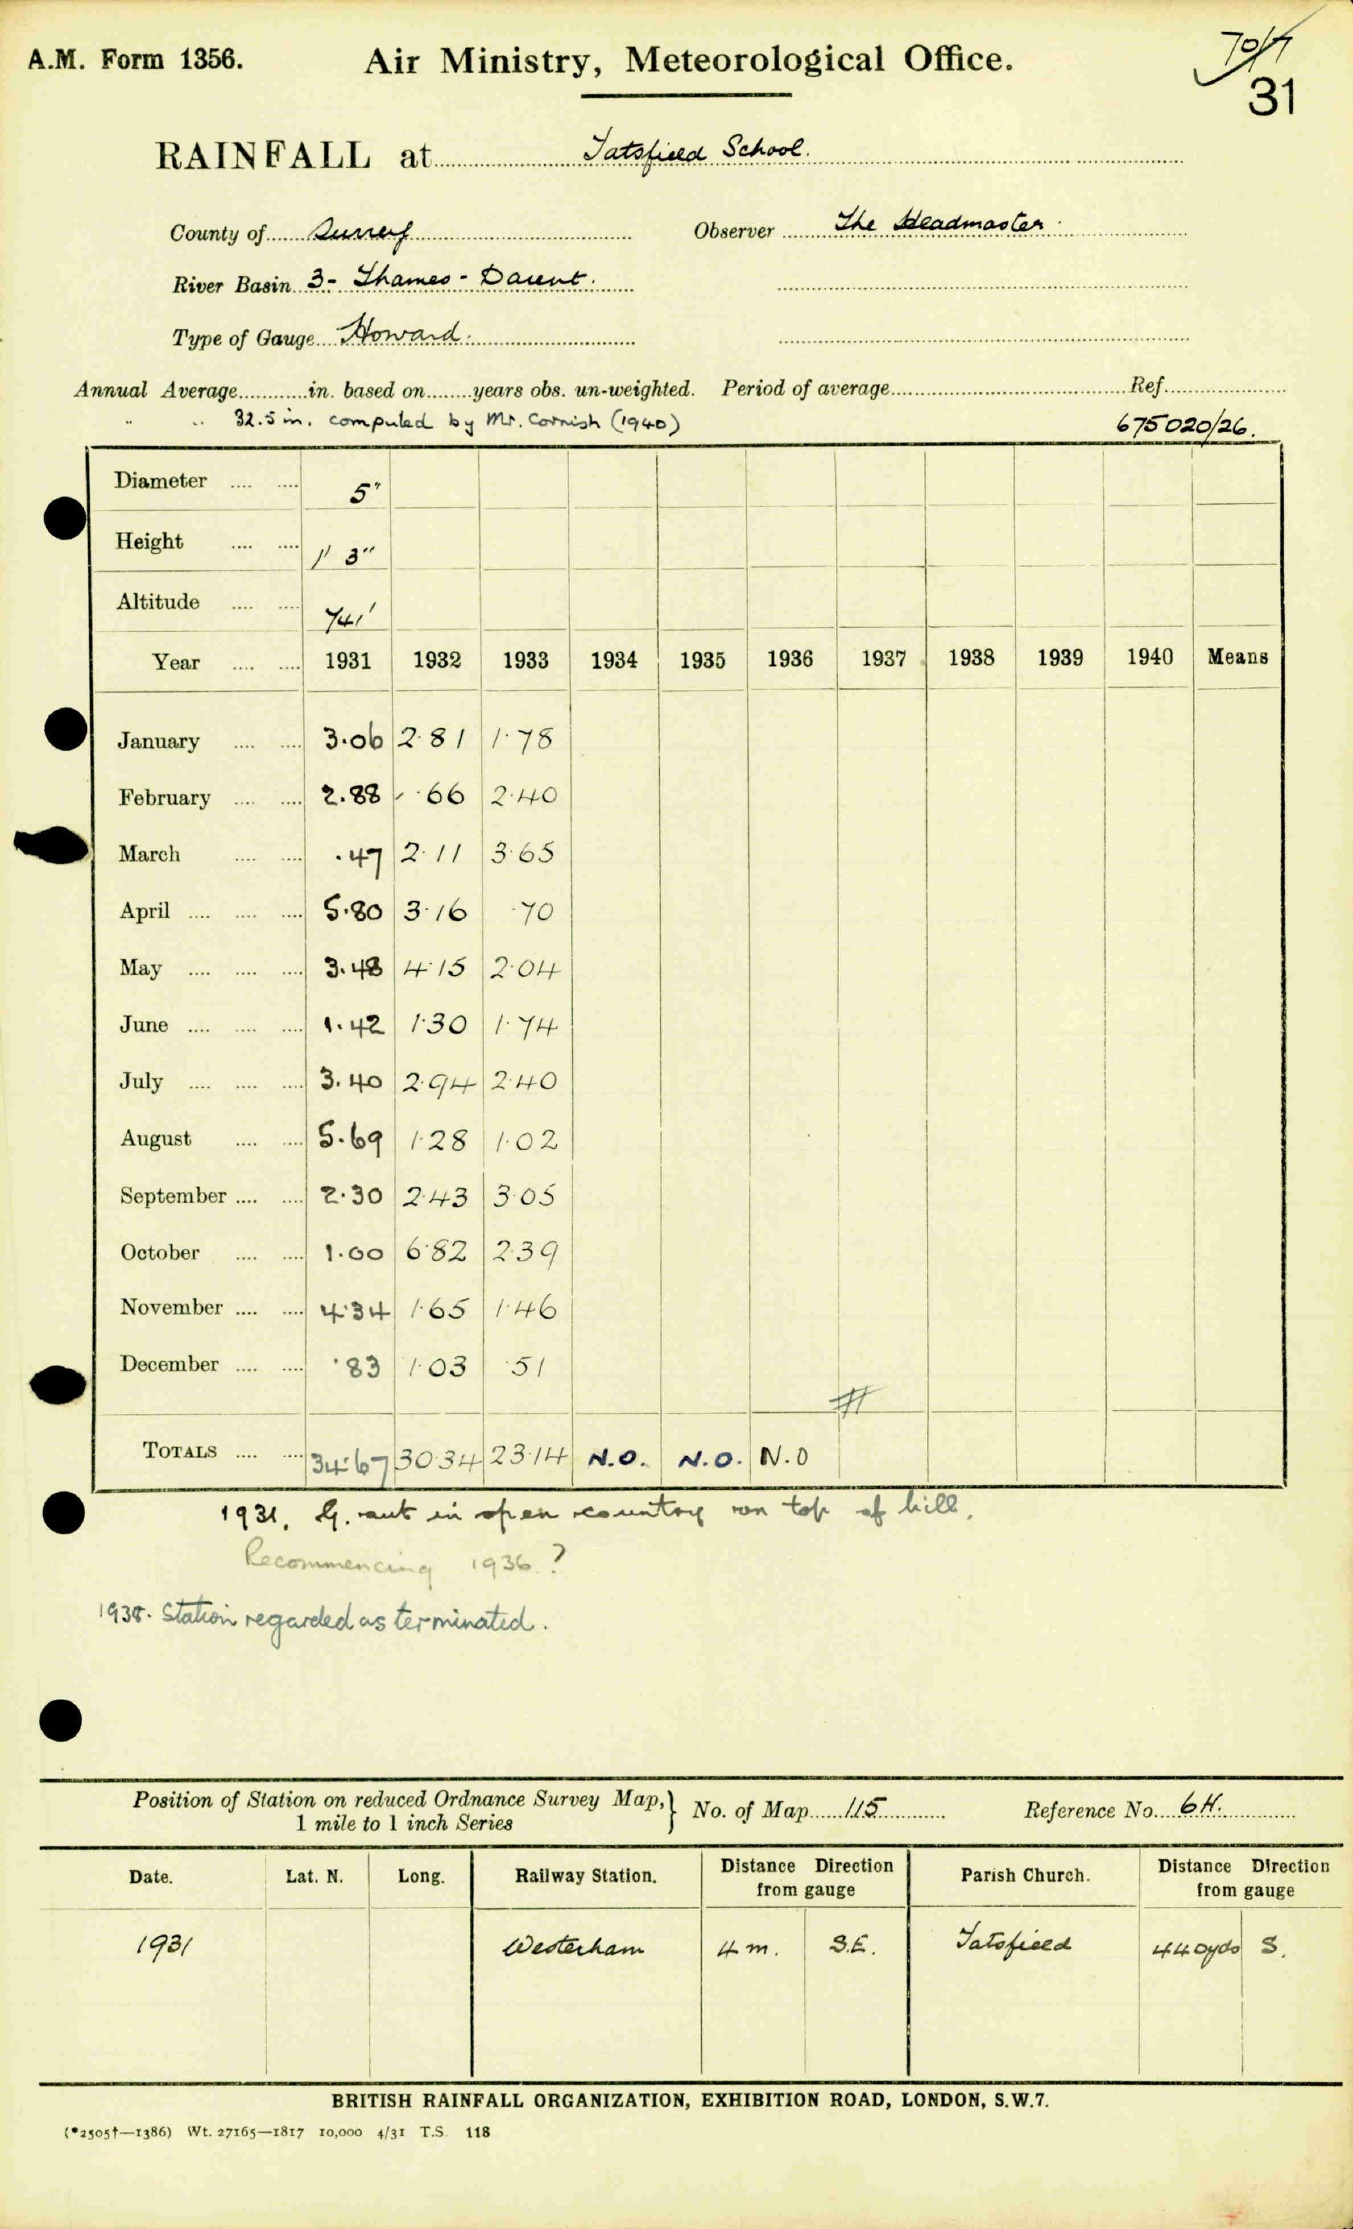 A.M. Form 1356.
Air Ministry, Meteorological Office.
31
RAINFALL at Tatsfield School.
County of Surrey Observer The Headmaster.
River Basin 3- Thames - Darent.
Type of Gauge Howard.
Annual Average in. based on years obs. un-weighted. Period of average Ref.
" " 32.5 in. computed by Mr. Cornish (1940) 675020/26.
Diameter 5"
Height 1' 3"
Altitude 741'
Year 1931 1932 1933 1934 1935 1936 1937 1938 1939 1940 Means
January 3.06 2.81 1.78
February 2.88 .66 2.40
March .47 2.11 3.65
April 5.80 3.16 .70
May 3.48 4.15 2.04
June 1.42 1.30 1.74
July 3.40 2.94 2.40
August 5.69 1.28 1.02
September 2.30 2.43 3.05
October 1.00 6.82 2.39
November 4.34 1.65 1.46
December .83 1.03 .51
TOTALS 34.67 30.34 23.14 N.O. N.O. N.O
1931. G. out in open country on top of hill.
Recommencing 1936 ?
1938. Station regarded as terminated.
Position of Station on reduced Ordnance Survey Map, } No. of Map 115 Reference No. 6H.
1 mile to 1 inch Series
Date. Lat. N. Long. Railway Station. Distance Direction from gauge Parish Church. Distance Direction from gauge
1931 Westerham 4 m. S.E. Tatsfield 440yds S.
BRITISH RAINFALL ORGANIZATION, EXHIBITION ROAD, LONDON, S.W.7.
(*2505†—1386) Wt. 27165—1817 10,000 4/31 T.S. 118